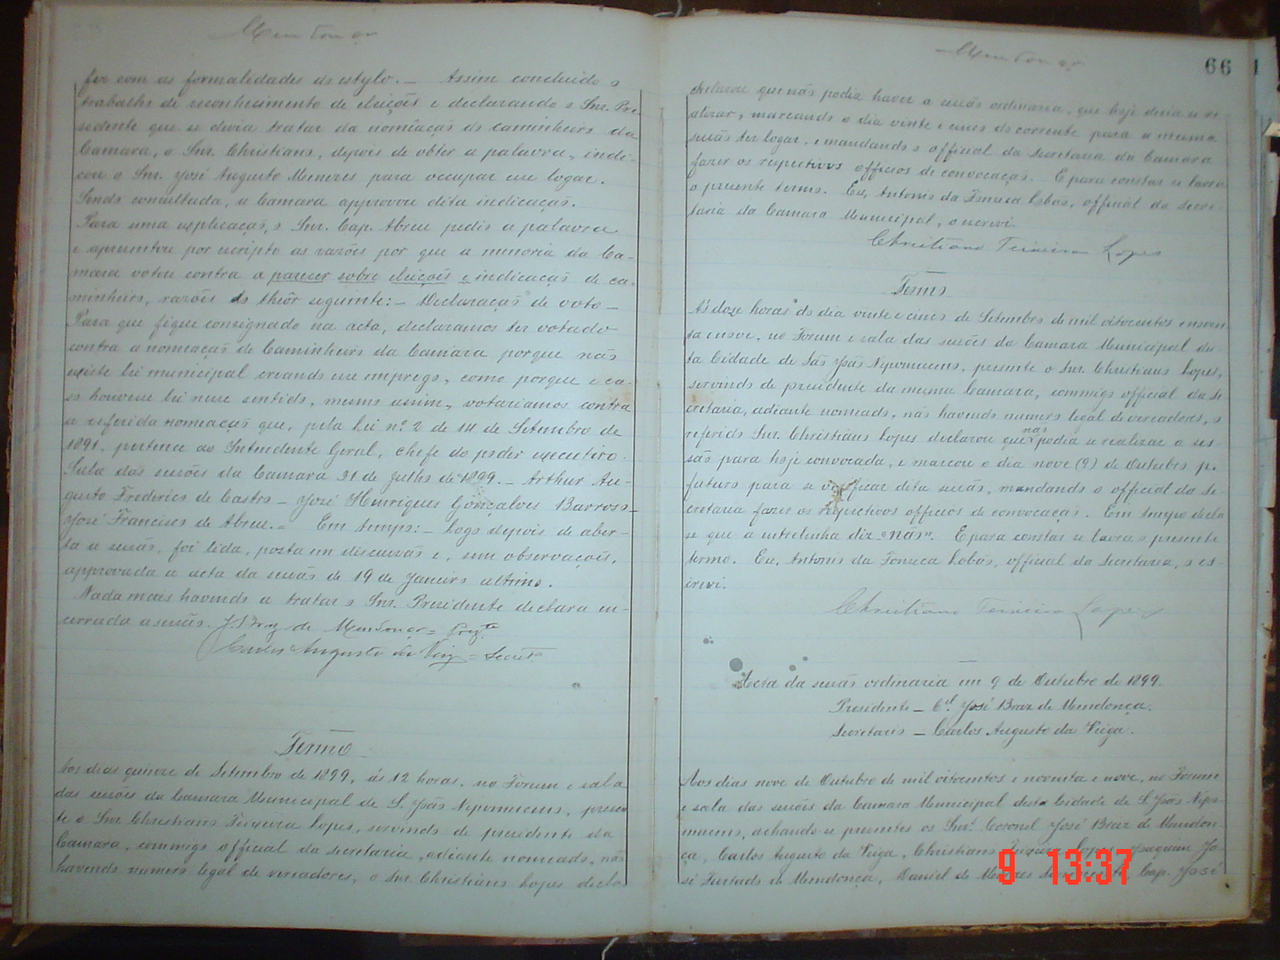 Mendonça
fez com as formalidades do estylo. — Assim concluido o
trabalho de reconhecimento de eleições e declarando o Snr. Pre
sidente que se devia tratar da nomeação do caminheiro da
Camara, o Snr. Christiano, depois de obter a palavra, indi-
cou o Snr. José Augusto Menezes para occupar esse logar.
Sendo consultada, a Camara approvou dita indicação.
Para uma explicação, o Snr. Cap. Abreu pedio a palavra
e apresentou por escripto as razões por que a minoria da Ca-
mara votou contra o parecer sobre eleições e indicação de ca-
minheiro, razões do theôr seguinte: — Declaração de voto —
Para que fique consignado na acta, declaramos ter votado
contra a nomeação de Caminheiro da Camara porque não
existe lei municipal creando esse emprego, como porque e ca-
so houvesse lei nesse sentido, mesmo assim, votariamos contra
a referida nomeação que, pela lei nº 2 de 14 de Setembro de
1891, pertence ao Intendente Geral, chefe do poder executivo.
Sala das sessões da Camara 31 de Julho de 1899. — Arthur Au-
gusto Frederico de Castro — José Henriques Gonçalves Barroso —
José Francisco de Abreu. — Em tempo: — Logo depois de aber-
ta a sessão, foi lida, posta em discussão e, sem observações,
approvada a acta da sessão de 19 de Janeiro ultimo.
Nada mais havendo a tratar o Snr. Presidente declara en-
cerrada a sessão. J. Braz de Mendonça = Prezte
Carlos Augusto da Veiga = Secret
Termo
Aos dias quinze de Setembro de 1899, ás 12 horas, no Forum e sala
das sessões da Camara Municipal de S. João Nepomuceno, presen
te o Snr Christiano Teixeira Lopes, servindo de presidente da
Camara, commigo official da secretaria, adiante nomeado, não
havendo numero legal de vereadores, o Snr Christiano Lopes decla
Mendonça
66
declarou que não podia haver a sessão ordinaria, que hoje devia se re
alizar, marcando o dia vinte e cinco do corrente para a mesma
sessão ter logar, e mandando o official da secretaria da Camara
fazer os respectivos officios de convocação. E para constar se lavra
o presente termo. Eu, Antonio da Fonseca Lobão, official da secre-
taria da Camara Municipal, o escrevi.
Christiano Teixeira Lopes
Termo
Ás doze horas do dia vinte e cinco de Setembro de mil oitocentos e noven
ta e nove, no Forum e sala das sessões da Camara Municipal des-
ta Cidade de São João Nepomuceno, presente o Snr. Christiano Lopes,
servindo de presidente da mesma Camara, commigo official da se
cretaria, adiante nomeado, não havendo numero legal de vereadores, o
referido Snr. Christiano Lopes declarou que não podia se realizar a ses-
são para hoje convocada, e marcou o dia nove (9) de Outubro p.
futuro para se verificar dita sessão, mandando o official da se
cretaria fazer os respectivos officios de convocação. Em tempo decla
se que a entrelinha diz "não". E para constar se lavra o presente
termo. Eu, Antonio da Fonseca Lobão, official da secretaria, o es-
crevi.
Christiano Teixeira Lopes
Acta da sessão ordinaria em 9 de Outubro de 1899.
Presidente — Cel José Braz de Mendonça.
Secretario — Carlos Augusto da Veiga.
Aos dias nove de Outubro de mil oitocentos e noventa e nove, no Forum
e sala das sessões da Camara Municipal desta Cidade de S. João Nepo-
muceno, achando-se presentes os Snrs. Coronel José Braz de Mendon-
ça, Carlos Augusto da Veiga, Christiano Teixeira Lopes, Joaquim Jo-
sé Furtado de Mendonça, Daniel de Cap. José
9 13:37